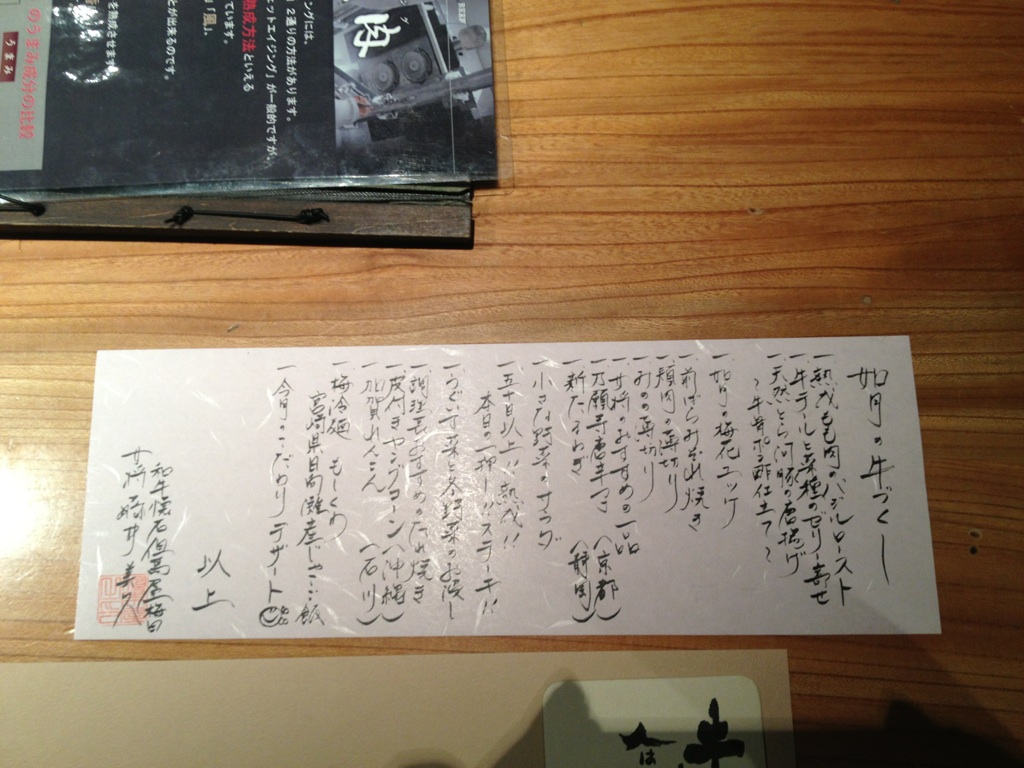 如月の牛づくし
一 熟成もも肉のバジルロースト
一 牛テールと菜種のゼリー寄せ
一 天然とら河豚の唐揚げ
〜牛骨ポン酢仕立て〜
一 如月の梅花ユッケ
一 前ばらみぞれ焼き
一 頬肉の薄切り
一 みのの薄切り
一 女将のおすすめの一品
一 万願寺唐辛子 (京都)
一 新たまねぎ (静岡)
一 小さな野菜のサラダ
一 五十日以上!!熟成!!
本日の一押し!!ステーキ!!
一 うぐいす菜と冬野菜のお浸し
一 調理長おすすめのたれ焼き
一 皮付きヤングコーン (沖縄)
一 加賀れんこん (石川)
一 梅冷麺 もしくわ
宮崎県日向灘産じゃこ飯
一 今月のこだわりデザート
以上
和牛懐石但馬屋梅田
女将
肉
ングには、
2通りの方法があります。
ェットエイジング」が一般的ですが、
熟成方法といえる
ています。
「風」
を熟成させます。
とが出来るのです。
うまみ
のうまみ成分の比較
牛
は